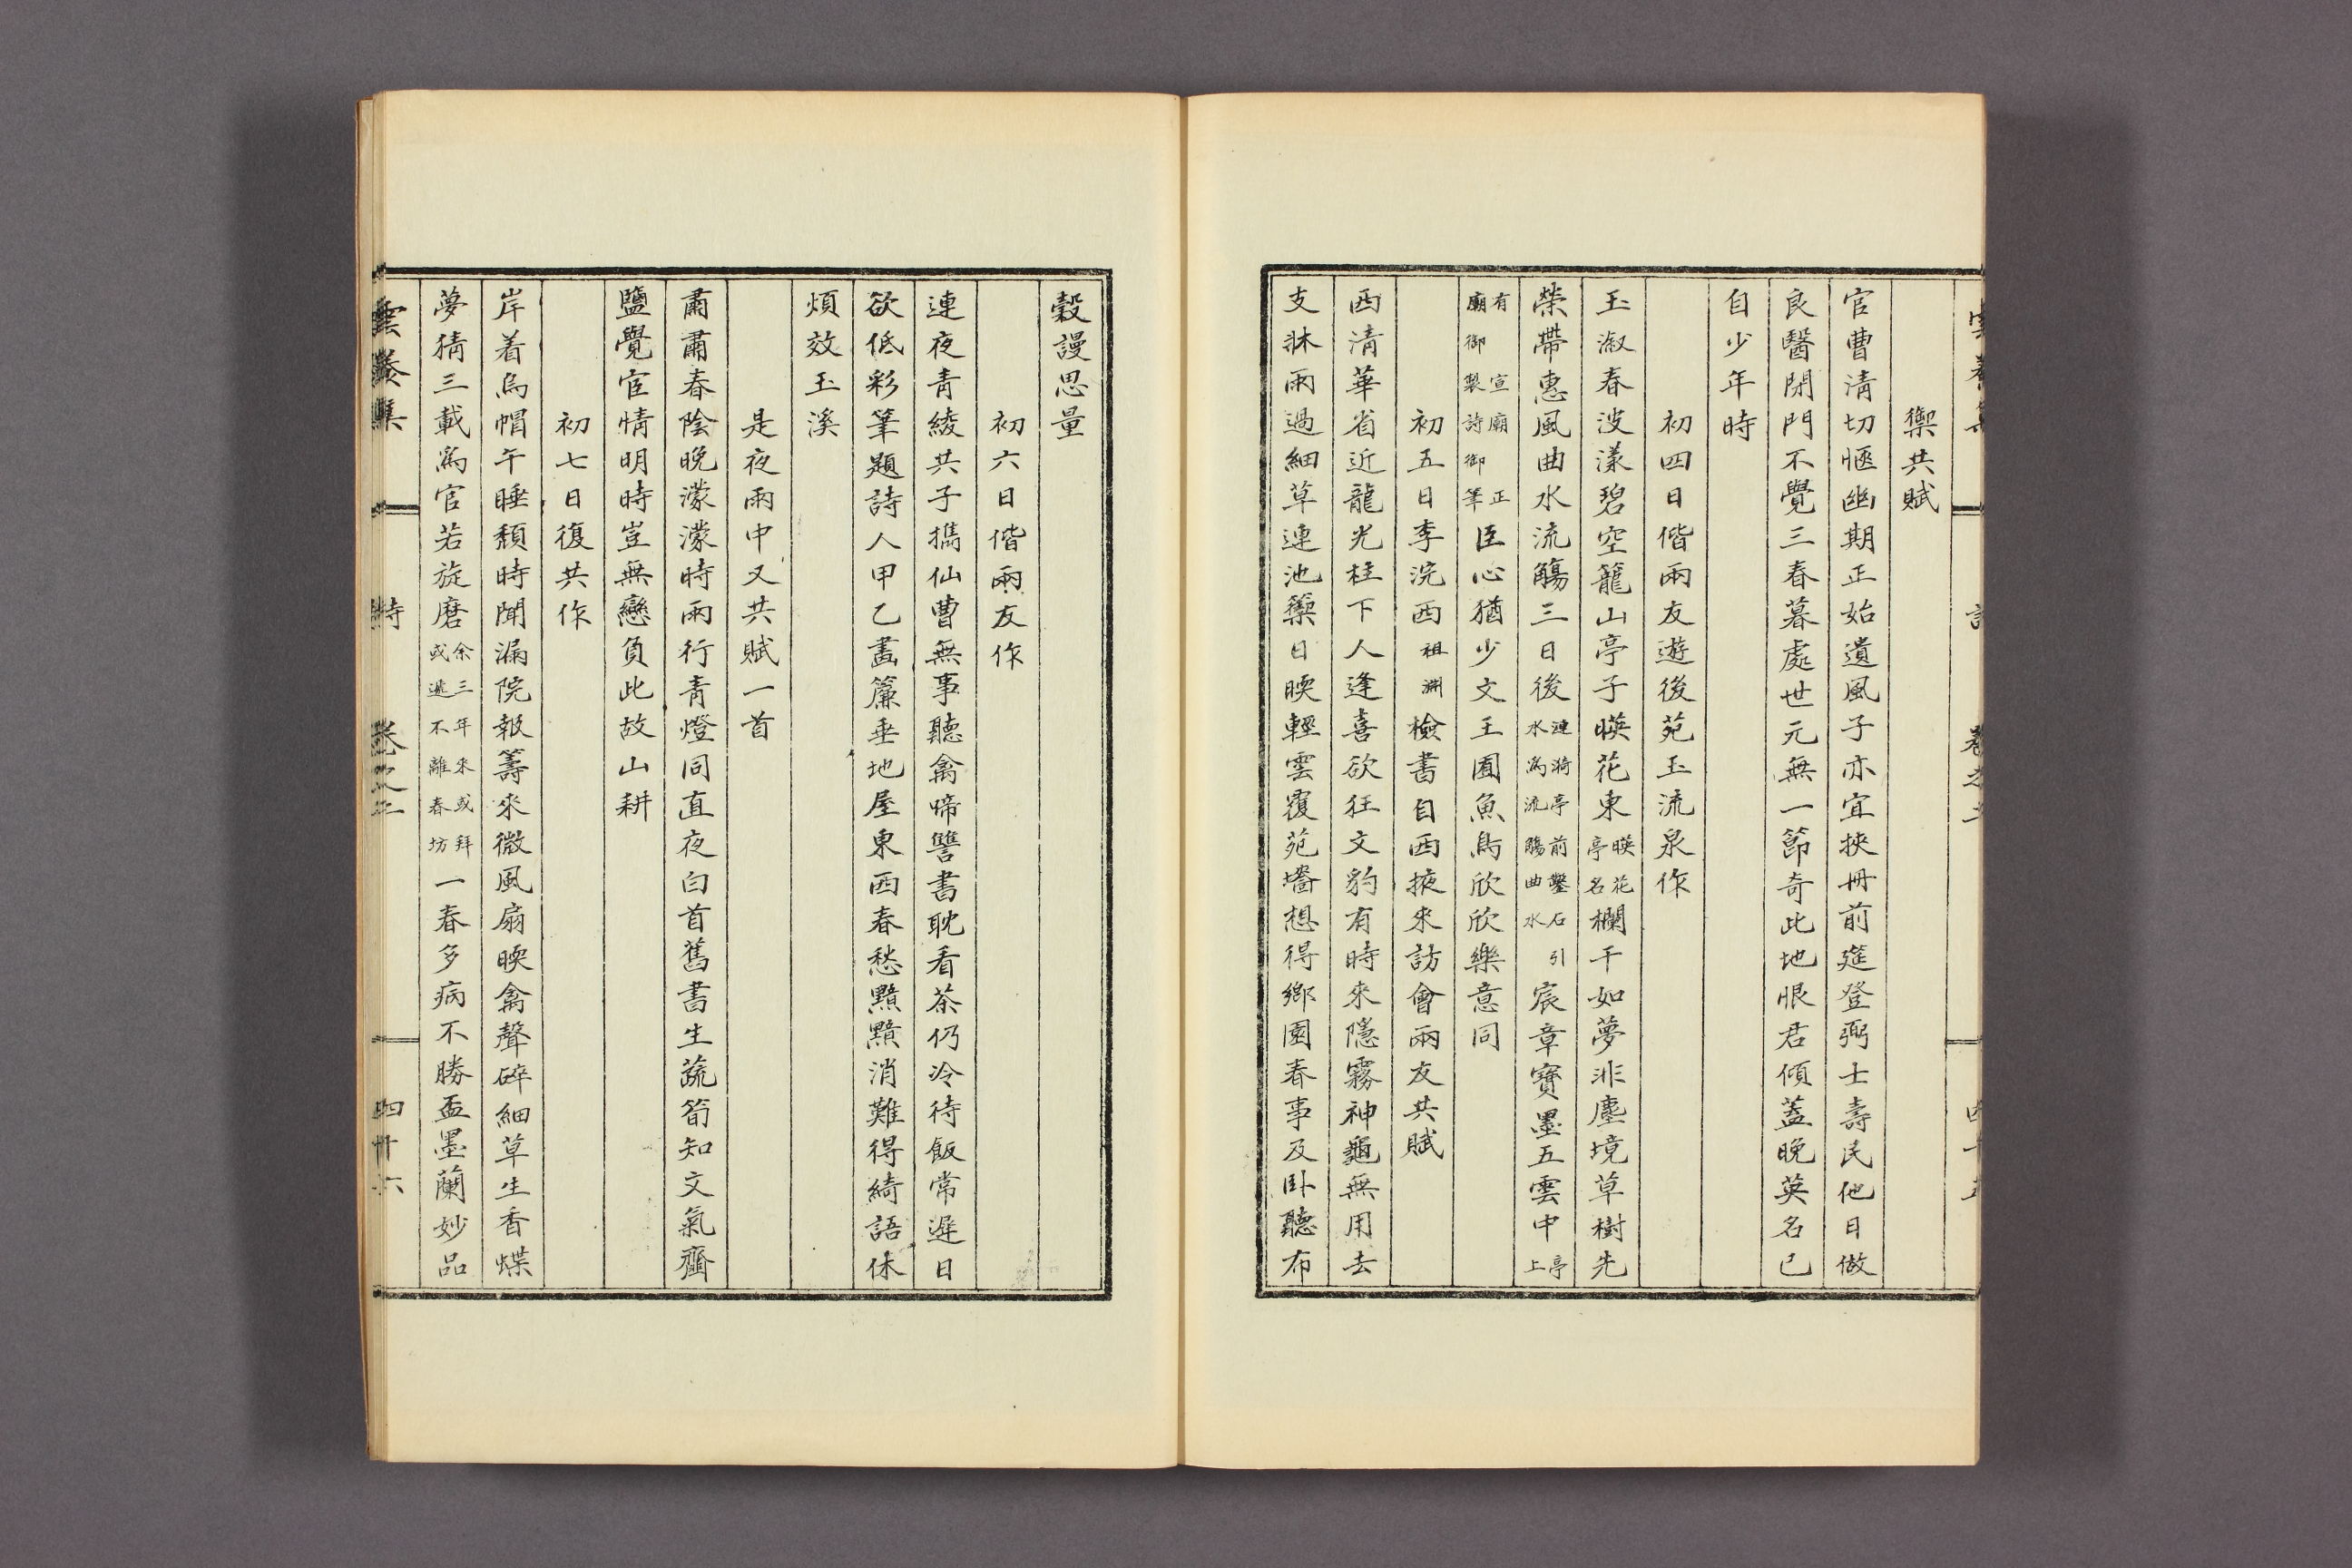 禦共賦
官曹淸切愜幽期正始遺風子亦宜挾冊前筵登弼士壽民他日做
良醫閉門不覺三春暮處世元無一節奇此地恨君傾蓋晩英名已
自少年時
初四日偕兩友遊後苑玉流泉作
玉淑春波漾碧空籠山亭子暎花東暎花亭名欄干如夢非塵境草樹先
榮帶惠風曲水流觴三日後漣漪亭前鑿石引水爲流觴曲水宸章寶墨五雲中亭上
有宣廟御筆正廟御製詩臣心猶少文王囿魚鳥欣欣樂意同
初五日李浣西祖淵檢書自西掖來訪會兩友共賦
西淸華省近龍光柱下人逢喜欲狂文豹有時來隱霧神龜無用去
支牀雨過細草連池籞日暎輕雲覆苑墻想得鄕園春事及臥聽布
穀謾思量
初六日偕兩友作
連夜靑綾共子攜仙曹無事聽禽啼讐書耽看茶仍冷待飯常遲日
欲低彩筆題詩人甲乙畵簾垂地屋東西春愁黯黯消難得綺語休
煩效玉溪
是夜雨中又共賦一首
肅肅春陰晩濛濛時雨行靑燈同直夜白首舊書生蔬筍知文氣虀
鹽覺宦情明時豈無戀負此故山耕
初七日復共作
岸着烏帽午睡頹時聞漏院報籌來微風扇暎禽聲碎細草生香蝶
夢猜三載爲官若旋磨余三年來或拜或遞不離春坊一春多病不勝盃墨蘭妙品
雲養集 詩 卷之二 四十六